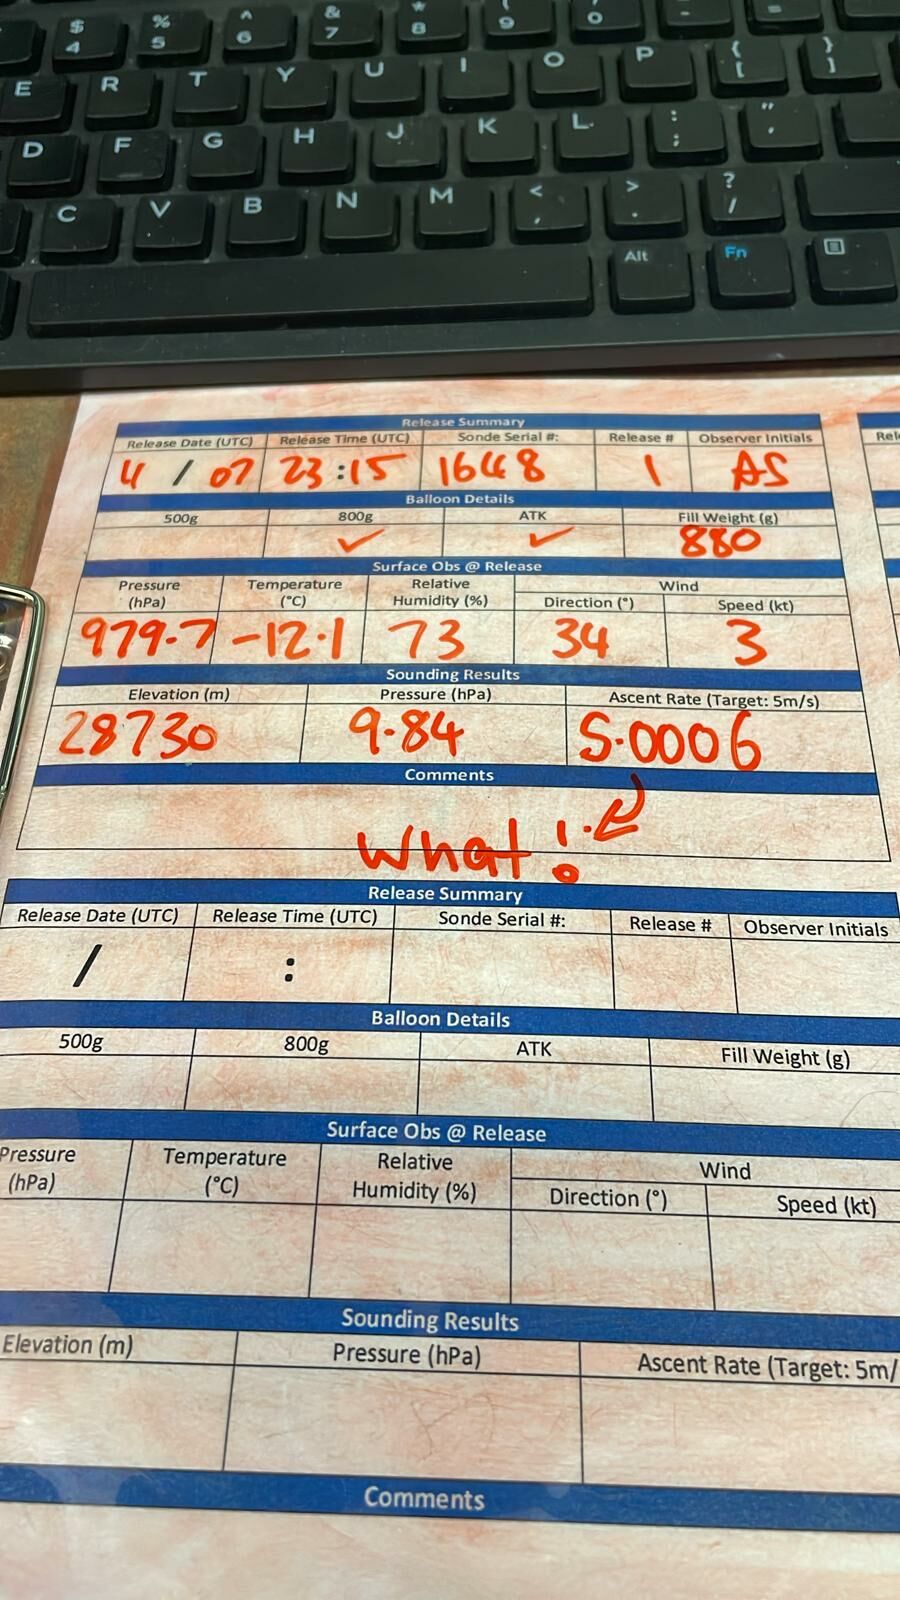 $ % ^ & * ( ) - =
4 5 6 7 8 9 0
E R T Y U I O P { }
[ ]
D F G H J K L : "
; '
C V B N M < > ?
, . /
Alt Fn
Release Summary
Release Date (UTC) Release Time (UTC) Sonde Serial #: Release # Observer Initials Rel
4 / 07 23:15 1648 1 AS
Balloon Details
500g 800g ATK Fill Weight (g)
✓ ✓ 880
Surface Obs @ Release
Pressure Temperature Relative Wind
(hPa) (°C) Humidity (%) Direction (°) Speed (kt)
979.7 -12.1 73 34 3
Sounding Results
Elevation (m) Pressure (hPa) Ascent Rate (Target: 5m/s)
28730 9.84 5.0006
Comments
What!
Release Summary
Release Date (UTC) Release Time (UTC) Sonde Serial #: Release # Observer Initials
/ :
Balloon Details
500g 800g ATK Fill Weight (g)
Surface Obs @ Release
Pressure Temperature Relative Wind
(hPa) (°C) Humidity (%) Direction (°) Speed (kt)
Sounding Results
Elevation (m) Pressure (hPa) Ascent Rate (Target: 5m/
Comments